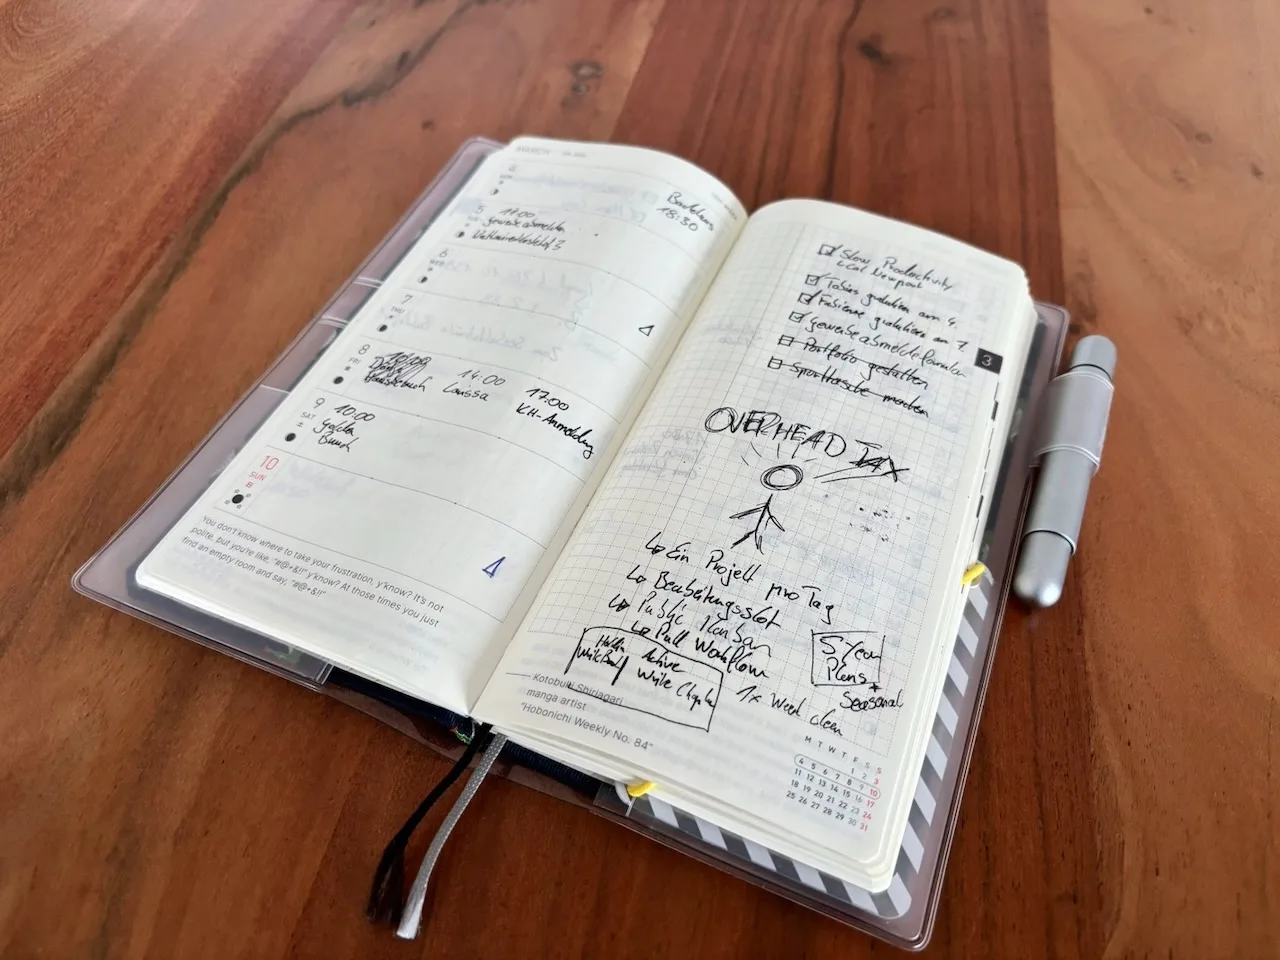 MARCH
Bartolms
18:30
4
5
17:00
gewerbeabmelden
6
7
THU
8
FRI
14:00
Larissa
17:00
KH-Anmeldung
9
SAT
10:00
10
SUN
You don't know where to take your frustration, y'know? It's not
polite, but you're like, "#@+&!!" y'know? At those times you just
find an empty room and say, "#@+&!!"
Slow Productivity
Cal Newport
Tobias gratulieren am 4.
Fabienne gratulieren am 7.
gewerbeabmeldeformular
Portfolio gestalten
Sporttasche machen
3
OVERHEAD TAX
↳ Ein Projekt pro Tag
↳ Bearbeitungsslot
↳ Public Kanban
↳ Pull Workflow
Active
Write
5 Year
Plans +
Seasonal
1x Week clean
— Kotobuki Shiriagari
manga artist
"Hobonichi Weekly No. 84"
M T W T F S S
1 2 3
4 5 6 7 8 9 10
11 12 13 14 15 16 17
18 19 20 21 22 23 24
25 26 27 28 29 30 31